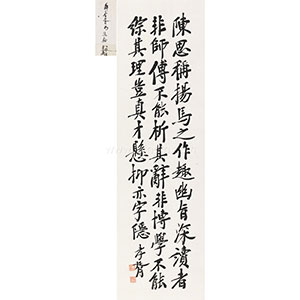 陳思稱揚馬之作趣幽旨深讀者
非師傅不能析其辭非博學不能
綜其理豈真才懸抑亦字隱 李胥